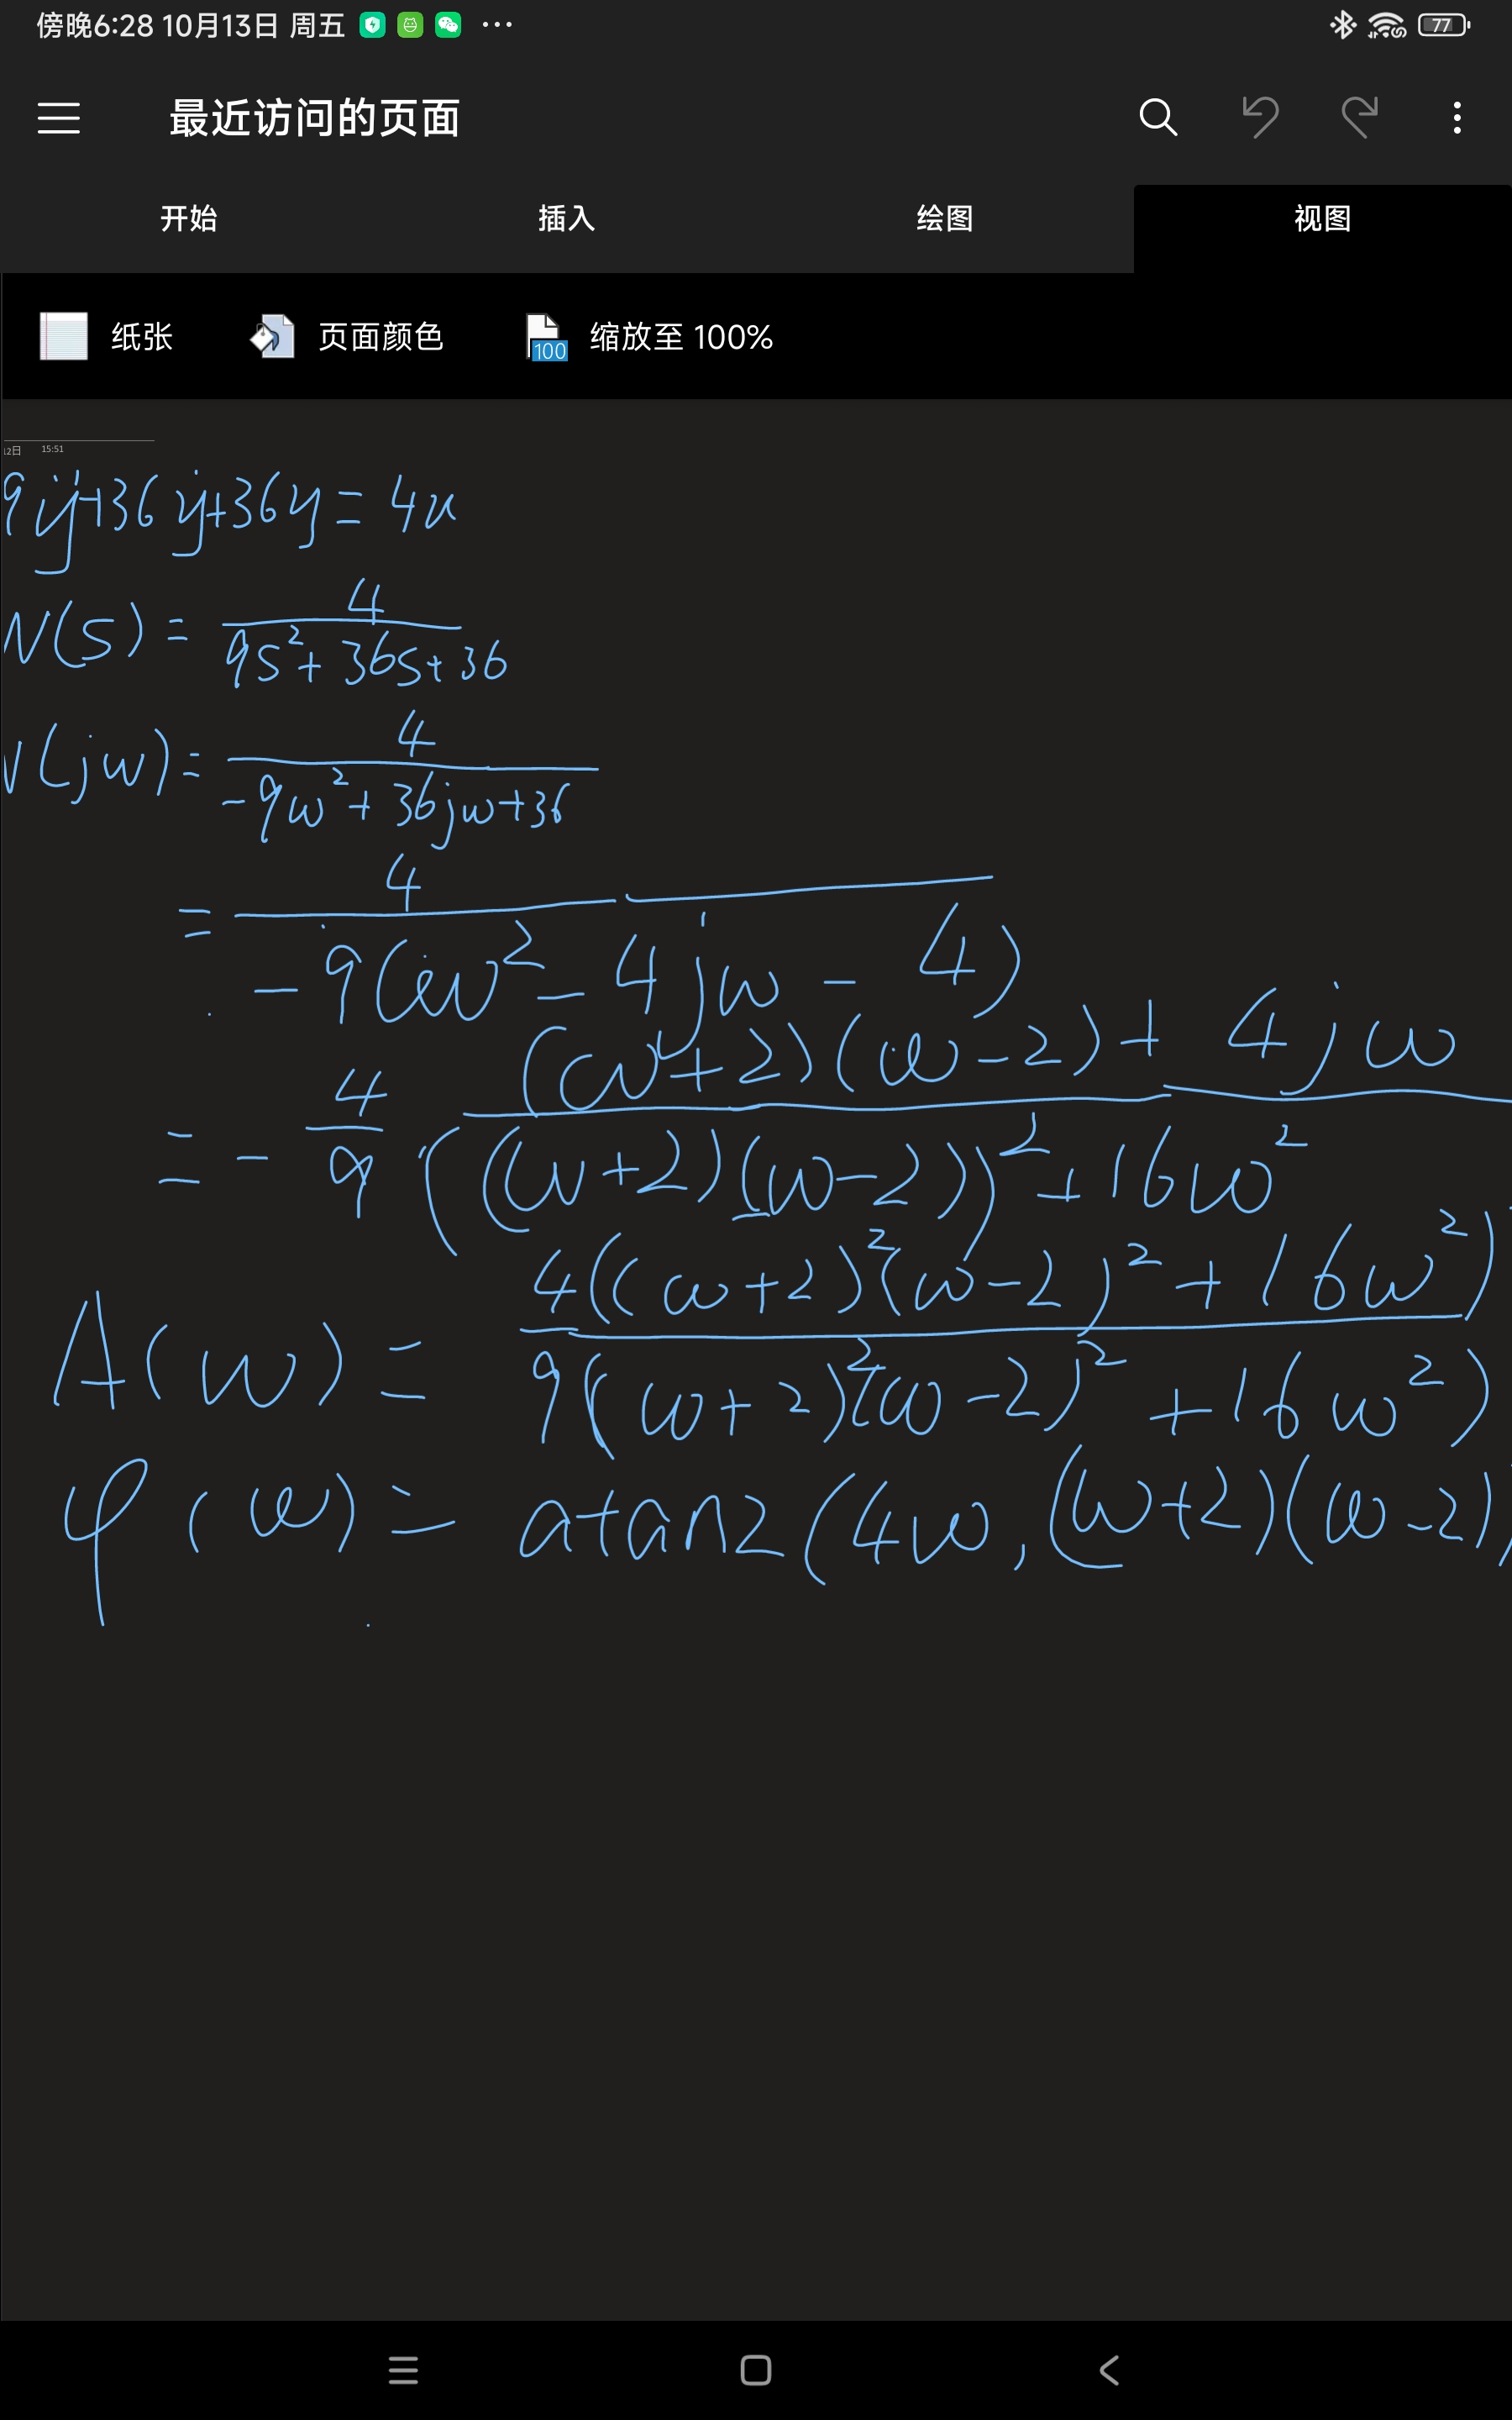 傍晚6:28 10月13日 周五 ··· 77
最近访问的页面
开始 插入 绘图 视图
纸张 页面颜色 100 缩放至 100%
12日 15:51
9ÿ+36ẏ+36y=4u
W(s) = 4/(9s²+36s+36)
W(jω) = 4/(-9ω²+36jω+36)
= 4/(-9(ω²-4jω-4))
= -4/9 ((ω+2)(ω-2)+4jω)/(((ω+2)(ω-2))²+16ω²
A(ω) = 4((ω+2)²(ω-2)²+16ω²)/9((ω+2)²(ω-2)²+16ω²)
φ(ω) = atan2(4ω,(ω+2)(ω-2))